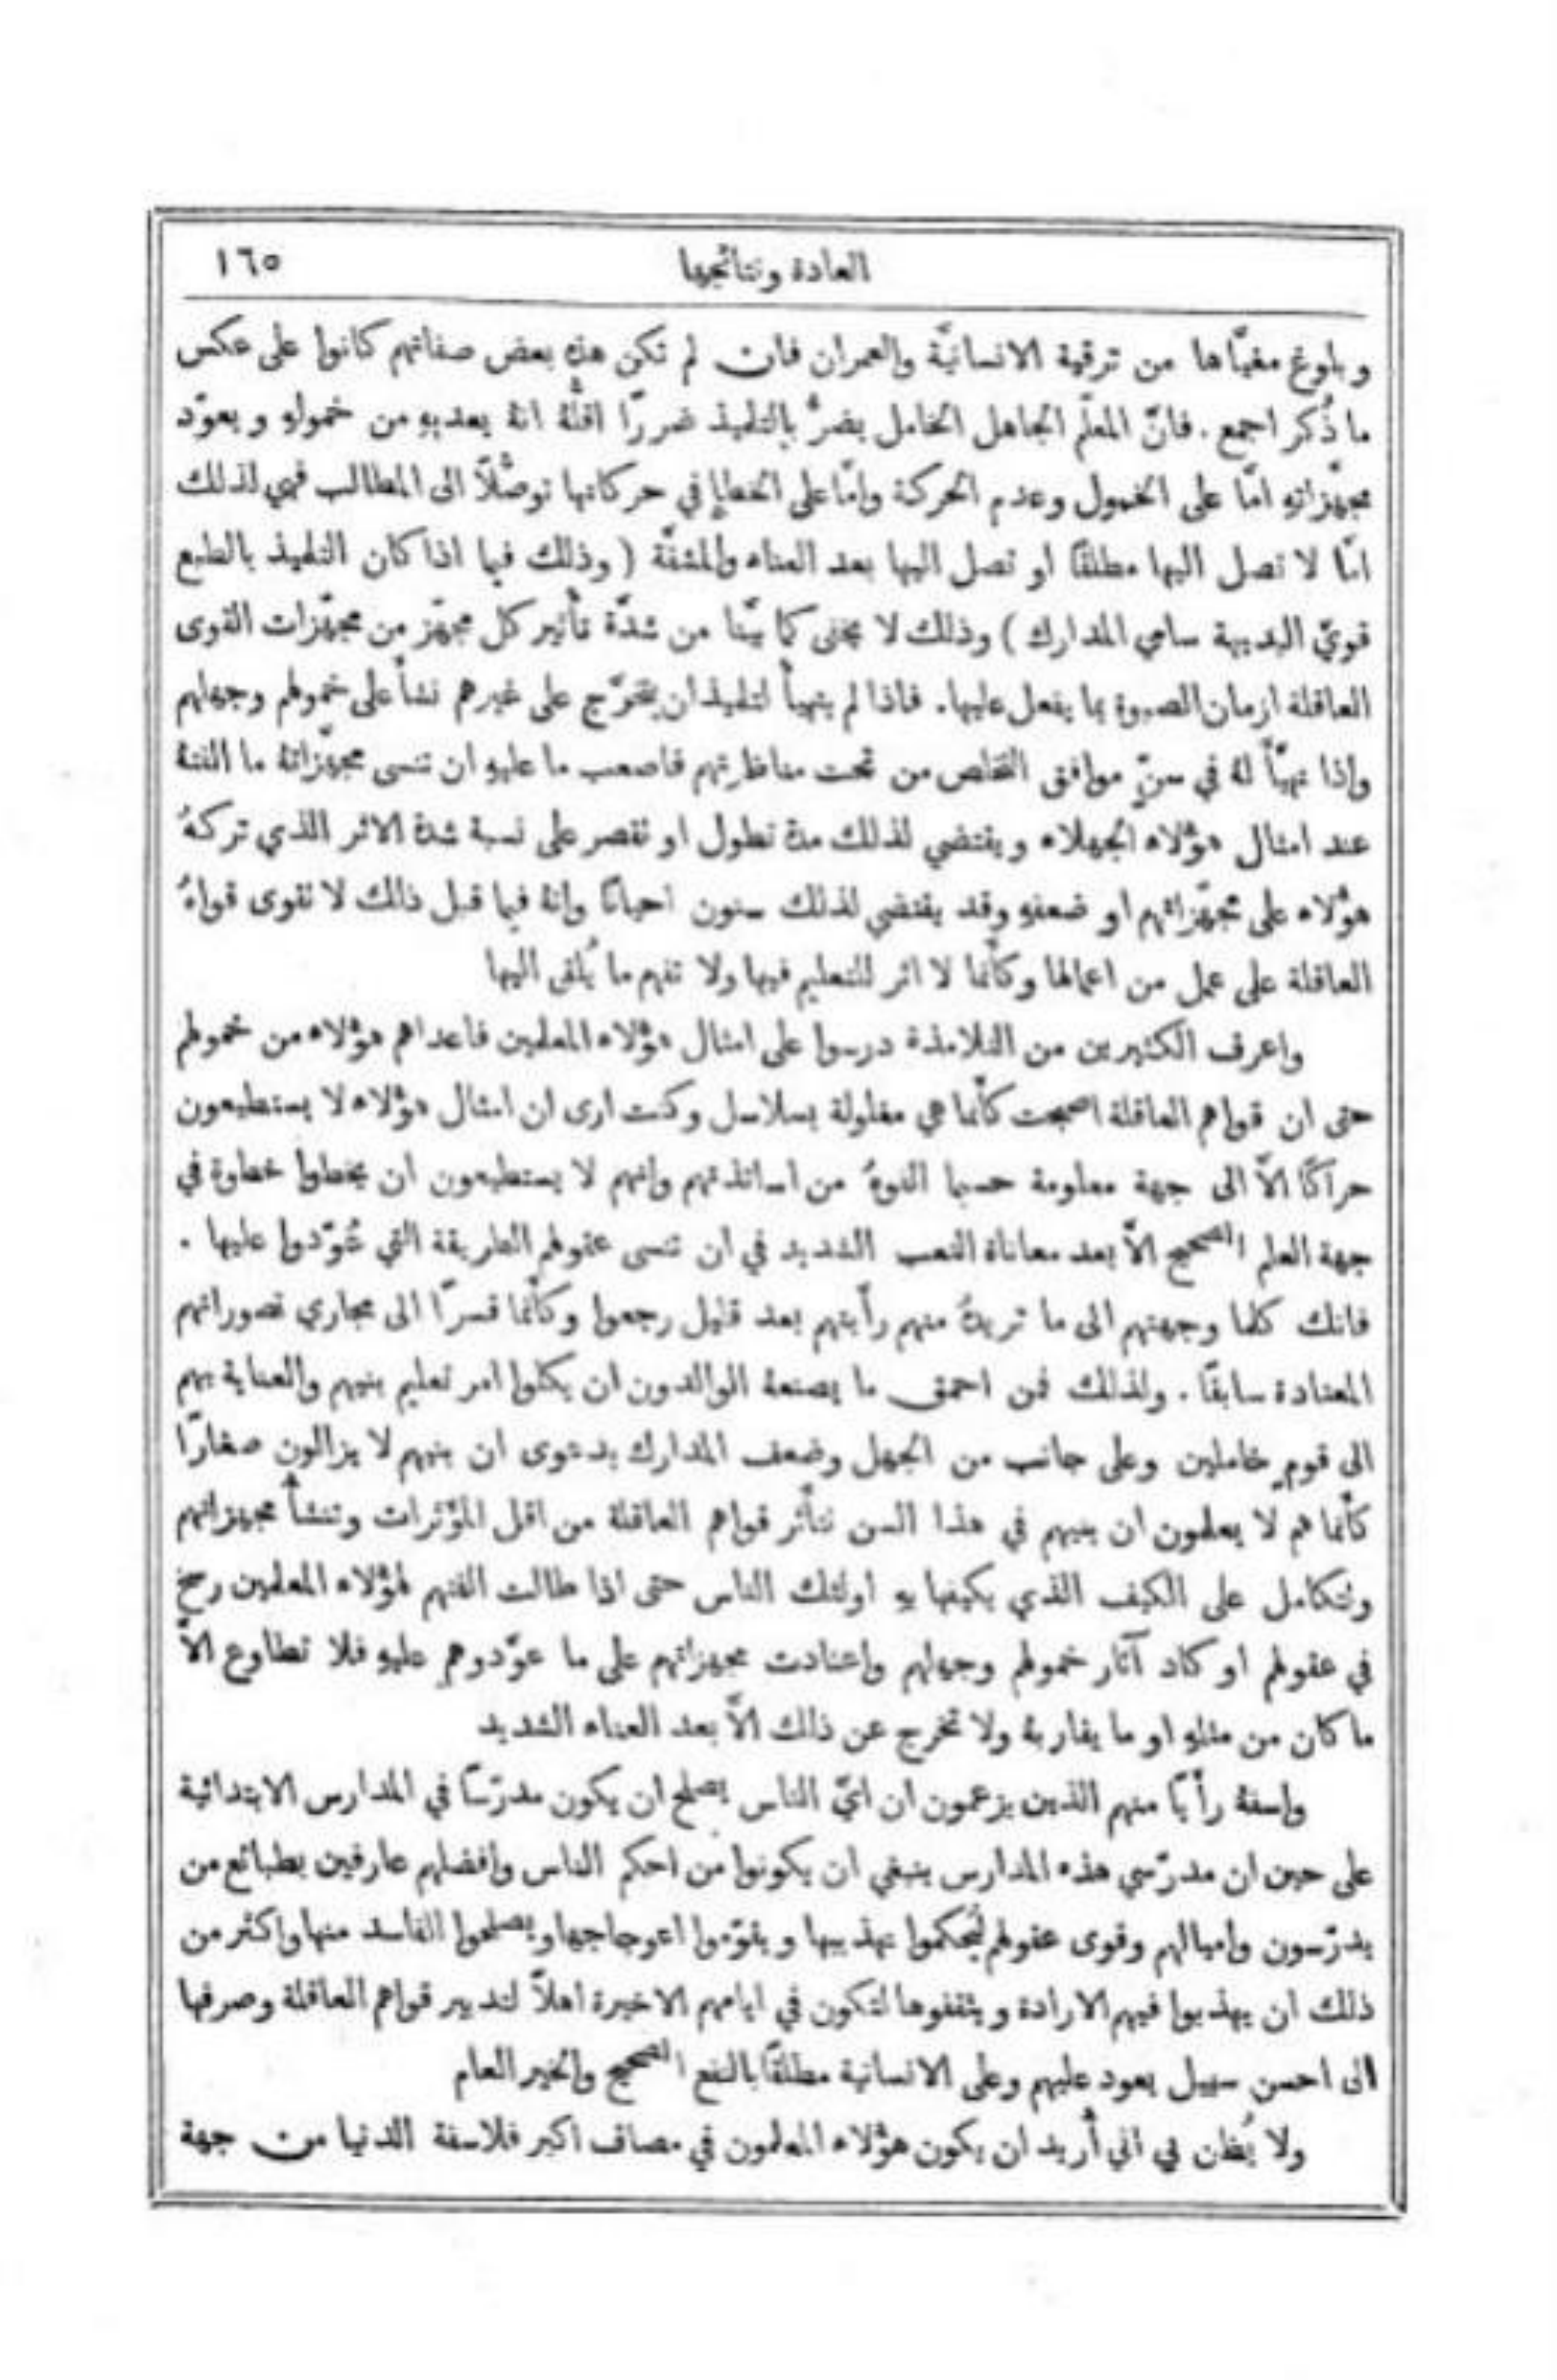 العادة ونتائجها ١٦٥
وبلوغ مغيَّاها من ترقية الانسانيَّة والعمران فان لم تكن هذه بعض صفاتهم كانوا على عكس
ما ذُكر اجمع . فانّ المعلّم الجاهل الخامل يضرُّ بالتلميذ ضررًا اقلُّهُ انهُ يعديهِ من خمولهِ ويعوّد
مجهّزاتهِ امّا على الخمول وعدم الحركة وامّا على الخطإِ في حركاتها توصُّلًا الى المطالب فهي لذلك
امّا لا تصل اليها مطلقًا او تصل اليها بعد العناء والمشقَّة ( وذلك فيما اذا كان التلميذ بالطبع
قويّ البديهة سامي المدارك ) وذلك لا يخفى كما بيَّنا من شدَّة تأثير كل مجهّز من مجهّزات القوى
العاقلة ازمان الصبوة بما يفعل عليها . فاذا لم يتهيأْ لتلميذ ان يتخرَّج على غيرهم نشأَ على خمولهم وجهلهم
واذا تهيَّأَ لهُ في سنٍّ موافق التخلص من تحت مناظرتهم فاصعب ما عليهِ ان تنسى مجهّزاتهُ ما الفتهُ
عند امثال هؤلاء الجهلاء ويقتضي لذلك مدة تطول او تقصر على نسبة شدة الاثر الذي تركهُ
هؤلاء على مجهّزاتهم او ضعفهِ وقد يقتضي لذلك سنون احيانًا وانهُ فيما قبل ذلك لا تقوى قواهُ
العاقلة على عمل من اعمالها وكأنما لا اثر للتعليم فيها ولا تفهم ما يُلقى اليها
واعرف الكثيرين من التلامذة درسوا على امثال هؤلاء المعلمين فاعداهم هؤلاء من خمولهم
حتى ان قواهم العاقلة اصبحت كأَنما هي مغلولة بسلاسل وكنت ارى ان امثال هؤلاء لا يستطيعون
حراكًا الَّا الى جهة معلومة حسبما الفوهُ من اساتذتهم وانهم لا يستطيعون ان يخطوا خطوة في
جهة العلم الصحيح الَّا بعد معاناة التعب الشديد في ان تنسى عقولهم الطريقة التي عُوّدوا عليها .
فانك كلما وجهتهم الى ما تريدهُ منهم رأَيتهم بعد قليل رجعوا وكأَنما قسرًا الى مجاري تصوراتهم
المعتادة سابقًا . ولذلك فمن احمق ما يصنعهُ الوالدون ان يكلوا امر تعليم بنيهم والعناية بهم
الى قومٍ خاملين وعلى جانب من الجهل وضعف المدارك بدعوى ان بنيهم لا يزالون صغارًا
كأَنما هم لا يعلمون ان بنيهم في هذا السن تتأَثر قواهم العاقلة من اقل المؤثرات وتنشأُ مجهزاتهم
وتتكامل على الكيف الذي يكيفها بهِ اولئك الناس حتى اذا طالت الفتهم لهؤلاء المعلمين رسخ
في عقولهم او كاد آثار خمولهم وجهلهم واعتادت مجهزاتهم على ما عوّدوهم عليهِ فلا تطاوع الَّا
ما كان من مثلهِ او ما يقاربهُ ولا تخرج عن ذلك الَّا بعد العناء الشديد
واسفهُ رأيًا منهم الذين يزعمون ان ايّ الناس يصلح ان يكون مدرّسًا في المدارس الابتدائية
على حين ان مدرّسي هذه المدارس ينبغي ان يكونوا من احكم الناس وافضلهم عارفين بطبائع من
يدرّسون واميالهم وقوى عقولهم ليُحكموا تهذيبها ويقوّموا اعوجاجها ويصلحوا الفاسد منها واكثر من
ذلك ان يهذبوا فيهم الارادة ويثقفوها لتكون في ايامهم الاخيرة اهلًا لتدبير قواهم العاقلة وصرفها
الى احسن سبيل يعود عليهم وعلى الانسانية مطلقًا بالنفع الصحيح والخير العام
ولا يُظن بي اني أُريد ان يكون هؤلاء المعلمون في مصاف اكبر فلاسفة الدنيا من جهة